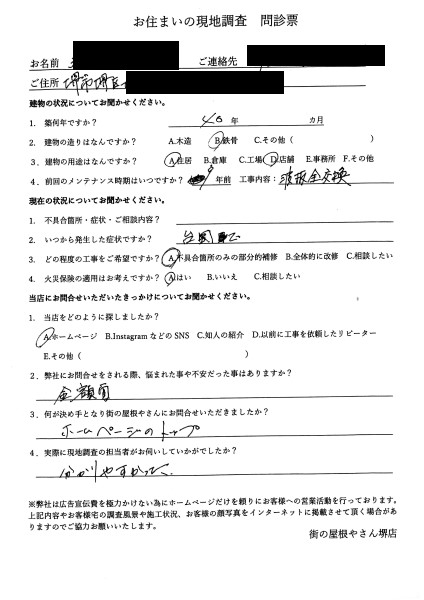 お住まいの現地調査　問診票
お名前　ご連絡先
ご住所　堺市堺区
建物の状況についてお聞かせください。
1. 築何年ですか？　40 年　カ月
2. 建物の造りはなんですか？　A.木造　B.鉄骨　C.その他（　）
3. 建物の用途はなんですか？　A.住居　B.倉庫　C.工場　D.店舗　E.事務所　F.その他
4. 前回のメンテナンス時期はいつですか？　年前　工事内容：波板全交換
現在の状況についてお聞かせください。
1. 不具合箇所・症状・ご相談内容？
2. いつから発生した症状ですか？　台風
3. どの程度の工事をご希望ですか？　A.不具合箇所のみの部分的補修　B.全体的に改修　C.相談したい
4. 火災保険の適用はお考えですか？　A.はい　B.いいえ　C.相談したい
当店にお問合せいただいたきっかけについてお聞かせください。
1. 当店をどのように探しましたか？
A.ホームページ　B.Instagram などの SNS　C.知人の紹介　D.以前に工事を依頼したリピーター
E.その他（　）
2. 弊社にお問合せをされる際、悩まれた事や不安だった事はありますか？
金額面
3. 何が決め手となり街の屋根やさんにお問合せいただきましたか？
ホームページのトップ
4. 実際に現地調査の担当者がお伺いしていかがでしたか？
分かりやすかった。
※弊社は広告宣伝費を極力かけない為にホームページだけを頼りにお客様への営業活動を行っております。
上記内容やお客様宅の調査風景や施工状況、お客様の顔写真をインターネットに掲載させて頂く場合があ
りますのでご協力お願いいたします。
街の屋根やさん堺店